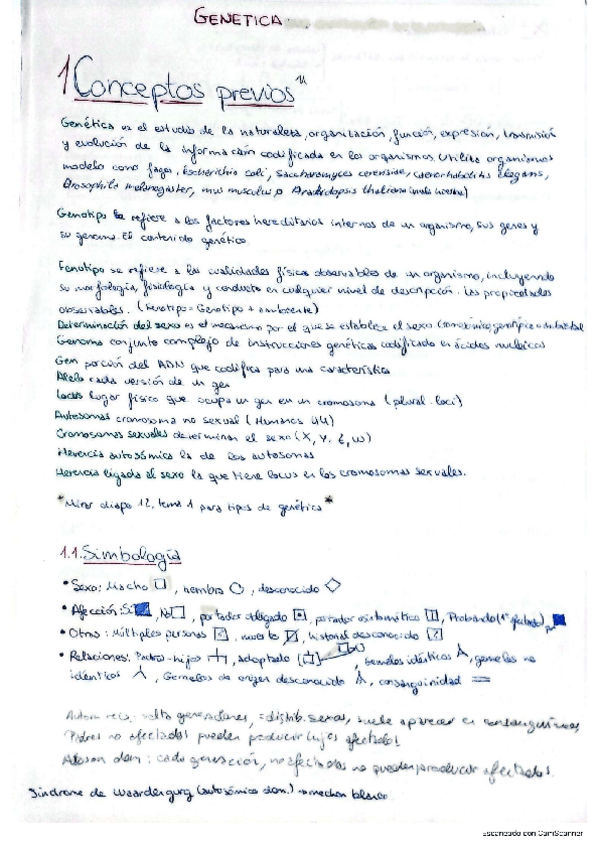 GENETICA
1 Conceptos previos
Genética es el estudio de la naturaleza, organización, función, expresión, transmisión
y evolución de la información codificada en los organismos. Utiliza organismos
modelo como fagos, Escherichia coli, Saccharomyces cerevisiae, Caenorhabditis elegans,
Drosophila melanogaster, mus musculus o Arabidopsis thaliana
Genotipo se refiere a los factores hereditarios internos de un organismo, sus genes y
su genoma. El contenido genético
Fenotipo se refiere a las cualidades físicas observables de un organismo, incluyendo
su morfología, fisiología y conducta en cualquier nivel de descripción. Las propiedades
observables. (Fenotipo = Genotipo + ambiente)
Determinación del sexo es el mecanismo por el que se establece el sexo
Genoma conjunto complejo de instrucciones genéticas codificado en ácidos nucleicos
Gen porción del ADN que codifica para una característica
Alelo cada versión de un gen
Locus lugar físico que ocupa un gen en un cromosoma (plural. loci)
Autosomas cromosoma no sexual (Humanos 44)
Cromosomas sexuales determinan el sexo (X, Y, Z, W)
Herencia autosómica la de los autosomas
Herencia ligada al sexo la que tiene locus en los cromosomas sexuales.
*Mirar diapo 12, tema 1 para tipos de genética*
1.1. Simbología
• Sexo: Macho □, hembra ○, desconocido ◇
• Afección: Sí, No, portador obligado, portador asintomático, Probando (1º afectado)
• Otros: Múltiples personas, muerto, historial desconocido
• Relaciones: Padres-hijos, adoptado, Gemelos idénticos, gemelos no
idénticos, Gemelos de origen desconocido, consanguinidad =
Autom reces: salta generaciones, = distrib. sexos, suele aparecer en consanguíneos,
Padres no afectados pueden producir hijos afectados
Autosom dom: cada generación, no afectados no pueden producir afectados.
Síndrome de Waardengurg (autosómico dom.) → mechon blanco.
Escaneado con CamScanner